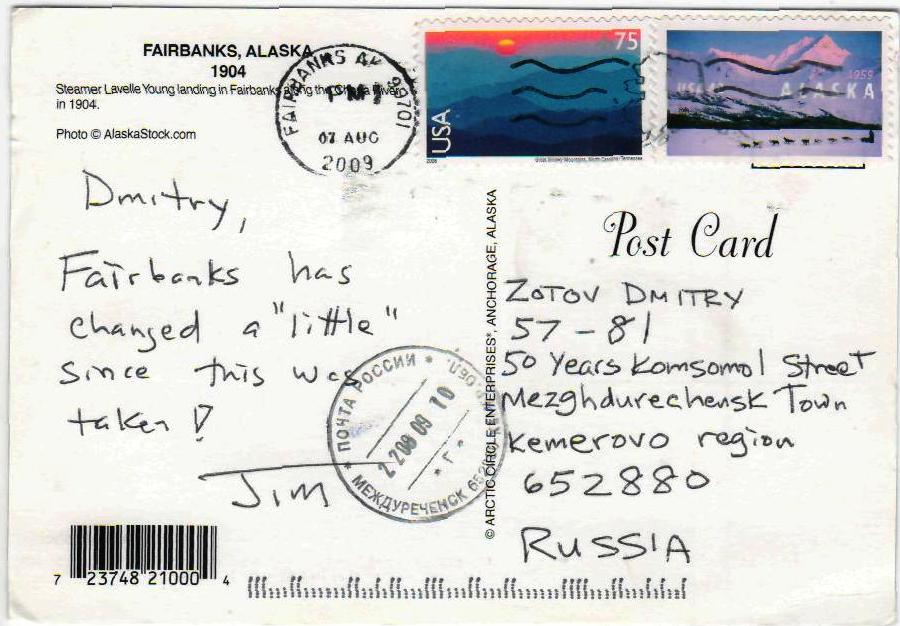 FAIRBANKS, ALASKA
1904
Steamer Lavelle Young landing in Fairbanks along the Chena River
in 1904.
Photo © AlaskaStock.com
FAIRBANKS AK 99701
PM
07 AUG
2009
75
USA
2006
Great Smoky Mountains, North Carolina/Tennessee
USA
1959
ALASKA
Dmitry,
Fairbanks has
changed a "little"
since this was
taken!
Jim
ПОЧТА РОССИИ
2208 09 10
Г
МЕЖДУРЕЧЕНСК
© ARCTIC CIRCLE ENTERPRISES®, ANCHORAGE, ALASKA
Post Card
ZOTOV DMITRY
57-81
50 Years Komsomol Street
Mezghdurechensk Town
Kemerovo region
652880
RUSSIA
7 23748 21000 4